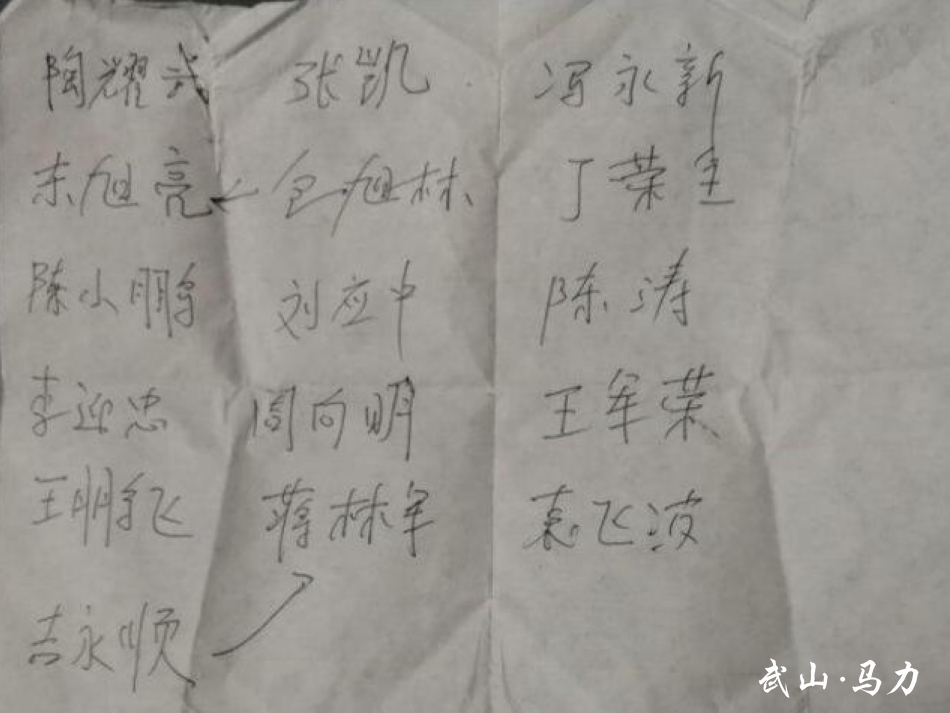 陶耀武 张凯 冯永新
朱旭亮 包旭林 丁荣全
陈小鹏 刘应中 陈涛
李迎忠 周向明 王军荣
王鹏飞 蒋林军 袁飞波
吉永顺
武山·马力